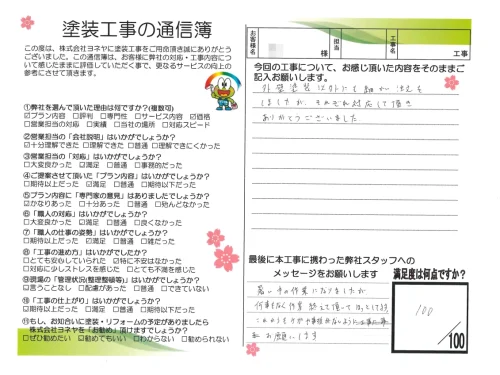 塗装工事の通信簿
この度は、株式会社ヨネヤに塗装工事をご用命頂き誠にありがとう
ございました。この通信簿は、お客様に弊社の対応・工事内容に
ついて感じたままに評価していただく事で、更なるサービスの向上の
参考にさせて頂きます。
①弊社を選んで頂いた理由は何ですか?(複数可)
☑プラン内容 □評判 □専門性 □サービス内容 ☑価格
□営業担当の対応 □実績 □当社の場所 □対応スピード
②営業担当の「会社説明」はいかがでしょうか?
☑十分理解できた □理解できた □普通 □理解できにくかった
③営業担当の「対応」はいかがでしょうか?
□大変良かった ☑満足 □普通 □事務的だった
④ご提案させて頂いた「プラン内容」はいかがでしょうか?
□期待以上だった ☑満足 □普通 □期待以下だった
⑤プラン内容に「専門家の意見」はありましたでしょうか?
☑かなりあった □十分あった □普通 □殆んどなかった
⑥「職人の対応」はいかがでしょうか?
□大変良かった ☑満足 □普通 □良くなかった
⑦「職人の仕事の姿勢」はいかがでしょうか?
□期待以上だった ☑満足 □普通 □雑だった
⑧「工事の進め方」はいかがでしたか?
□とても安心していられた ☑特に不安はなかった
□対応に少しストレスを感じた □とても不満を感じた
⑨現場の「管理状況(整理整頓等)」はいかがでしょうか?
□言うことなし □配慮があった ☑普通 □できていない
⑩「工事の仕上がり」はいかがでしょうか?
□期待以上だった ☑満足 □普通 □期待以下だった
⑪もし、お知合いに塗装・リフォームの予定がありましたら
株式会社ヨネヤを「お勧め」頂けますでしょうか?
□ぜひ勧めたい ☑勧めてもいい □わからない □勧められない
お客様名
様
担当
工事名
工事
今回の工事について、お感じ頂いた内容をそのままご
記入お願いします。
外壁塗装以外にも細かい注文を
しましたが、それぞれ対応して頂き
ありがとうございました
最後に本工事に携わった弊社スタッフへの
メッセージをお願いします
暑い中の作業になりましたが
何事もなく作業終えて頂いて
お願いします
満足度は何点ですか?
100
/100